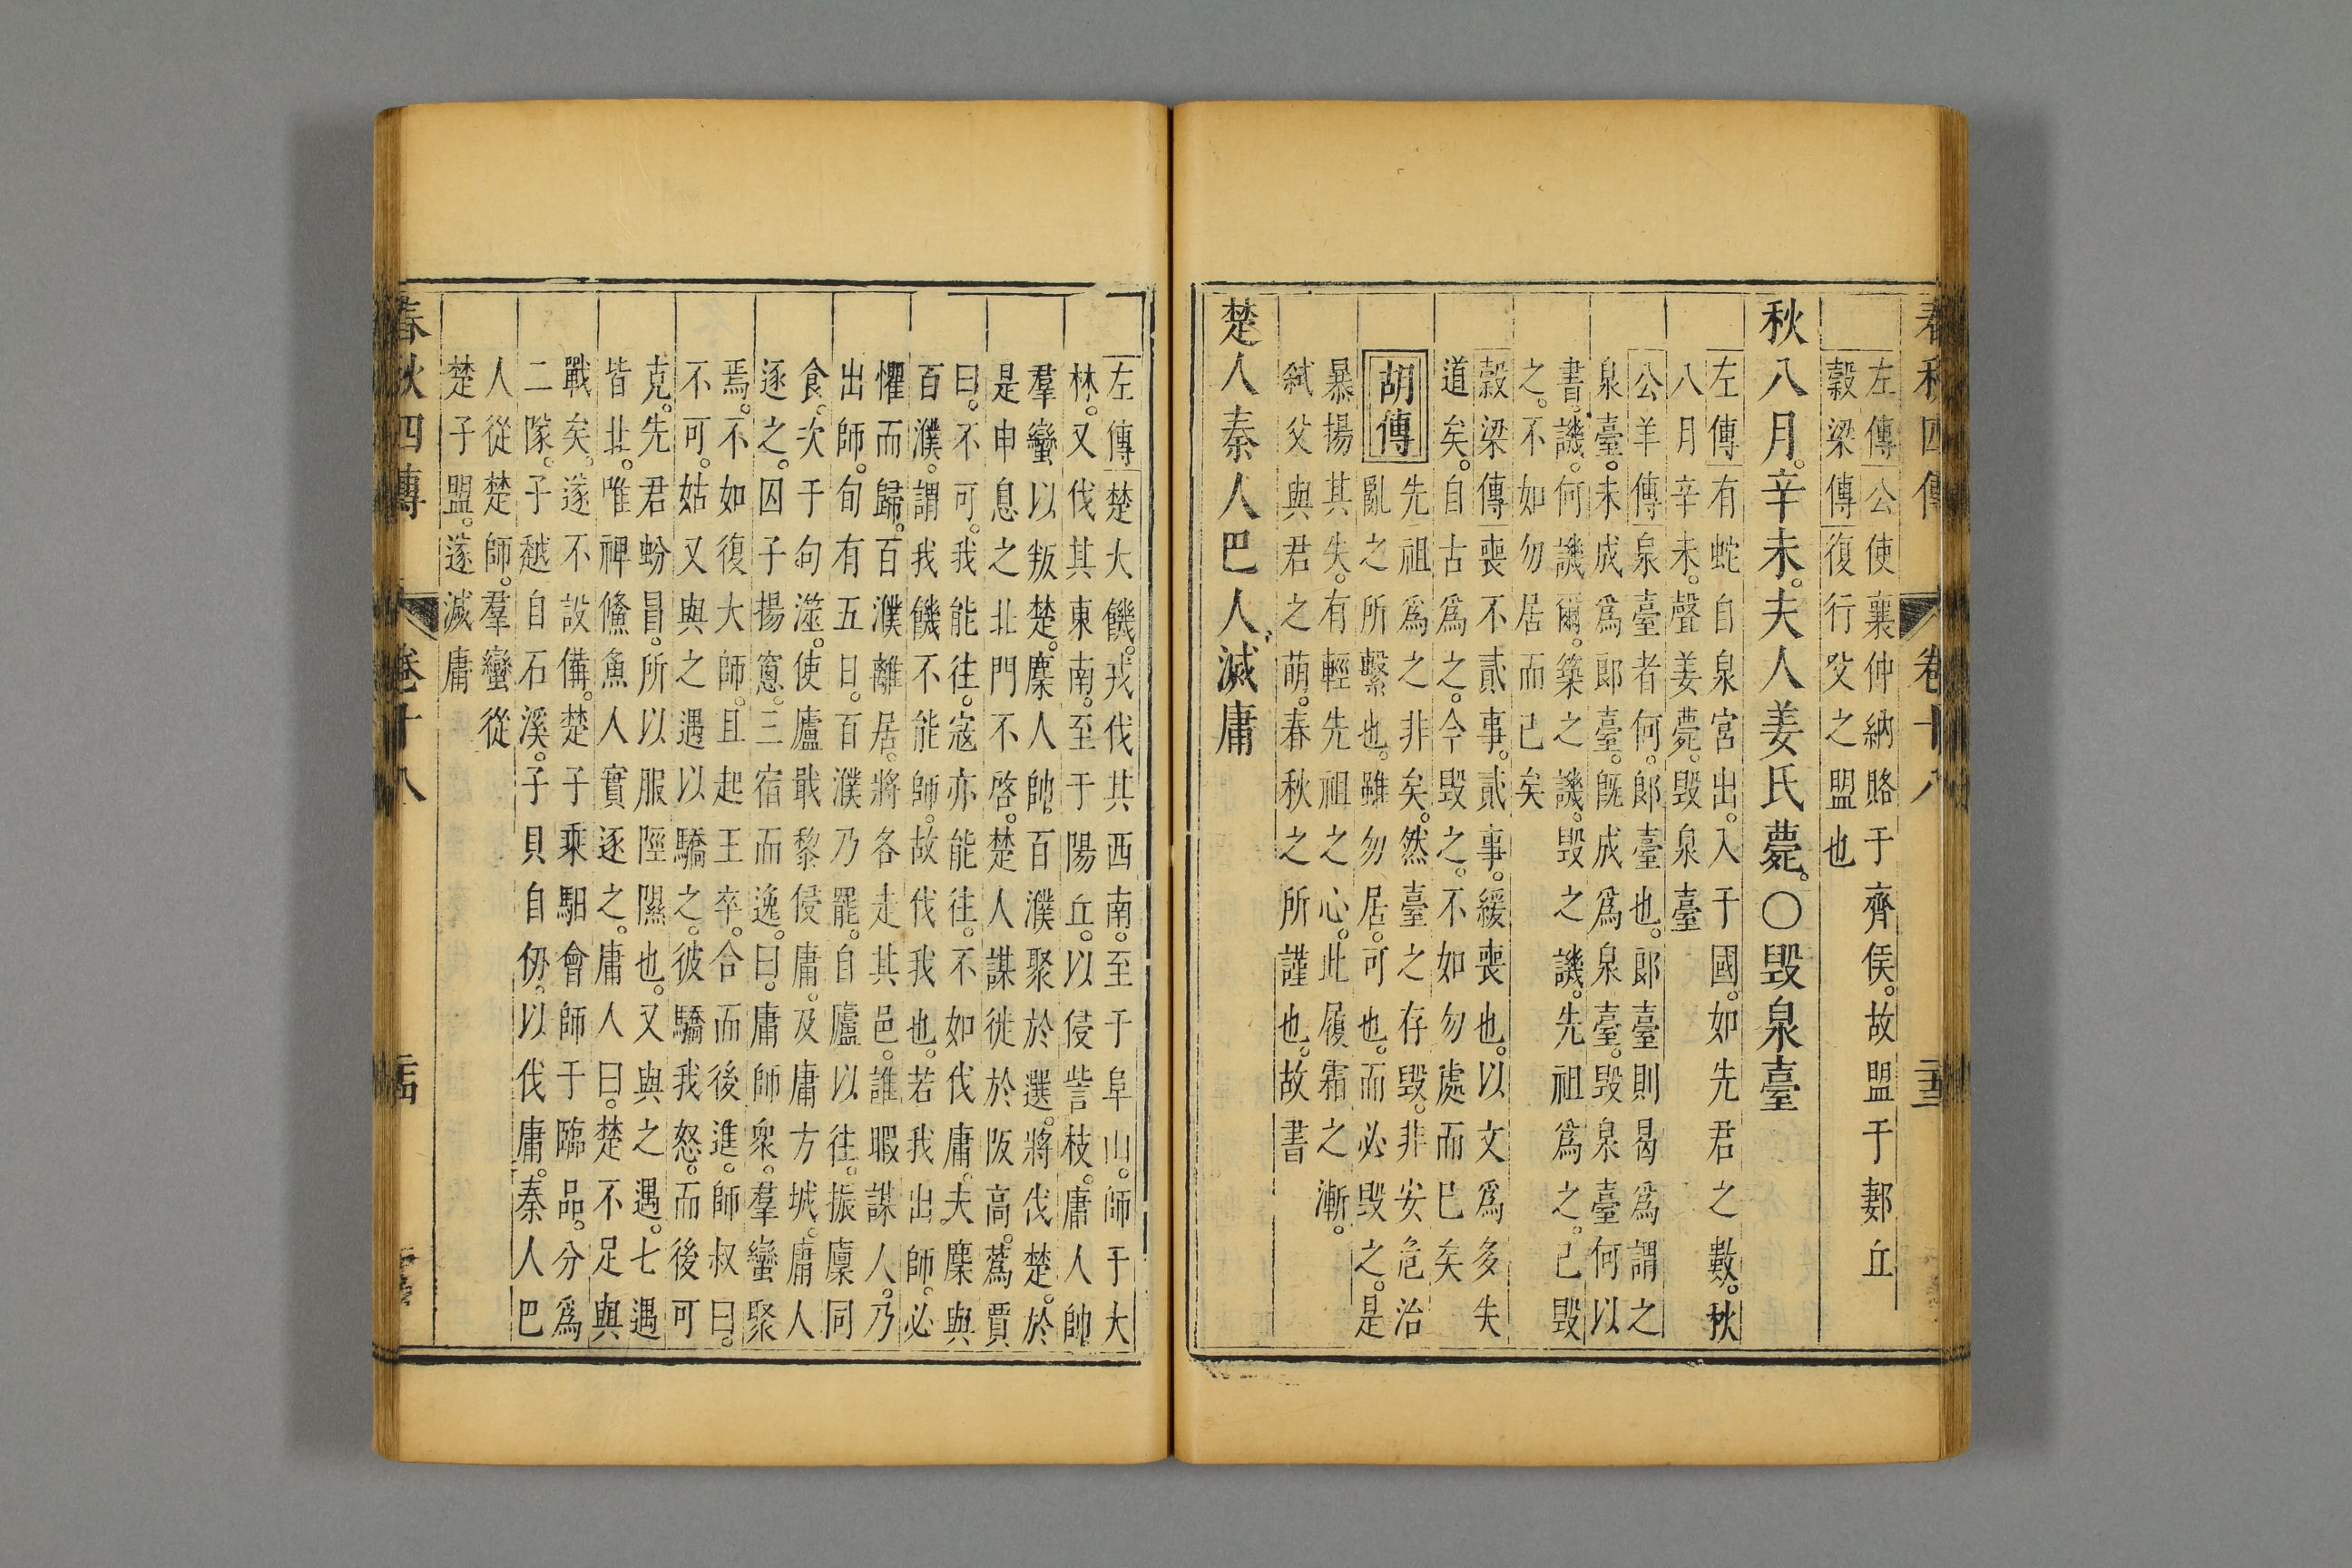 春秋四傳 卷十八 二十三
左傳公使襄仲納賂于齊侯。故盟于郪丘
穀梁傳復行父之盟也
秋八月。辛未。夫人姜氏薨。○毀泉臺
左傳有蛇自泉宮出。入于國。如先君之數。秋
八月辛未。聲姜薨。毀泉臺
公羊傳泉臺者何。郎臺也。郎臺則曷爲謂之
泉臺。未成爲郎臺。旣成爲泉臺。毀泉臺何以
書。譏。何譏爾。築之譏。毀之譏。先祖爲之。己毀
之。不如勿居而已矣
穀梁傳喪不貳事。貳事。緩喪也。以文爲多失
道矣。自古爲之。今毀之。不如勿處而已矣
胡傳先祖爲之非矣。然臺之存毀。非安危治
亂之所繫也。雖勿居。可也。而必毀之。是
暴揚其失。有輕先祖之心。此履霜之漸。
弑父與君之萌。春秋之所謹也。故書
楚人秦人巴人滅庸
左傳楚大饑。戎伐其西南。至于阜山。師于大
林。又伐其東南。至于陽丘。以侵訾枝。庸人帥
羣蠻以叛楚。麇人帥百濮聚於選。將伐楚。於
是申息之北門不啓。楚人謀徙於阪高。蒍賈
曰。不可。我能往。寇亦能往。不如伐庸。夫麇與
百濮。謂我饑不能師。故伐我也。若我出師。必
懼而歸。百濮離居。將各走其邑。誰暇謀人。乃
出師。旬有五日。百濮乃罷。自廬以往。振廩同
食。次于句澨。使廬戢黎侵庸。及庸方城。庸人
逐之。囚子揚窻。三宿而逸。曰。庸師衆。羣蠻聚
焉。不如復大師。且起王卒。合而後進。師叔曰。
不可。姑又與之遇以驕之。彼驕我怒。而後可
克。先君蚡冒。所以服陘隰也。又與之遇。七遇
皆北。唯裨鯈魚人實逐之。庸人曰。楚不足與
戰矣。遂不設備。楚子乘馹會師于臨品。分爲
二隊。子越自石溪。子貝自仞。以伐庸。秦人巴
人從楚師。羣蠻從
楚子盟。遂滅庸
春秋四傳 卷十八